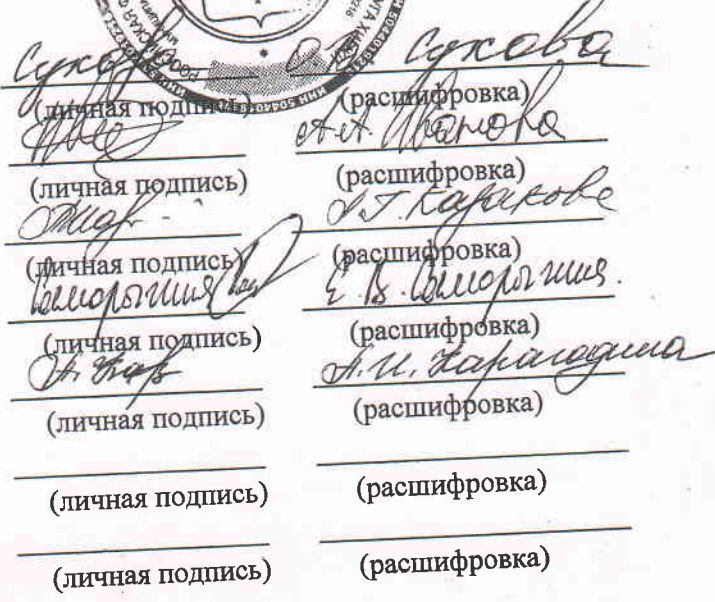 РОССИЙСКАЯ
Сухова Сухова
(личная подпись) (расшифровка)
А.А. Иванова
(личная подпись) (расшифровка)
Казакова
(личная подпись) (расшифровка)
Саморыгина Е.В. Саморыгина.
(личная подпись) (расшифровка)
А. Кар А.И. Карагодина
(личная подпись) (расшифровка)
(личная подпись) (расшифровка)
(личная подпись) (расшифровка)